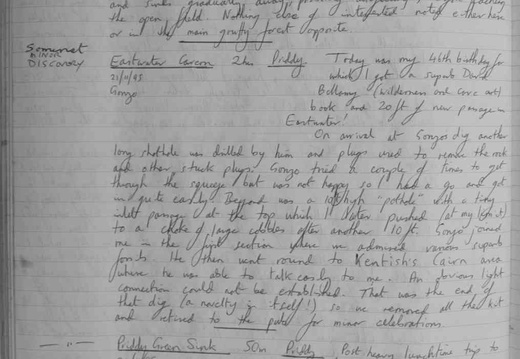 the open field. Nothing else of interest noted either here
or in the main gruffy forest opposite.
Somerset
MINOR
DISCOVERY
Eastwater Cavern 2hrs Priddy. Today was my 46th birthday for
21/11/93 which I got a superb David
Gonzo Bellamy (wilderness and cave art)
book and 20ft of new passage in
Eastwater!
On arrival at Gonzos dig another
long shothole was drilled by him and plugs used to remove the rock
and other stuck plugs. Gonzo tried a couple of times to get
through the squeeze but was not happy so I had a go and got
in quite easily. Beyond was a 10ft high "pothole" with a tiny
inlet passage at the top which I later pushed (at my limit)
to a choke of large cobbles after another 10 ft. Gonzo joined
me in the first section where we admired various superb
fossils. He then went round to Kentish's Cairn area
where he was able to talk easily to me. An obvious light
connection could not be established. That was the end of
that dig (a novelty in itself!) so we removed all the kit
and retired to the pub for minor celebrations.
Priddy Green Sink 50m Priddy. Post heavy lunchtime trip to